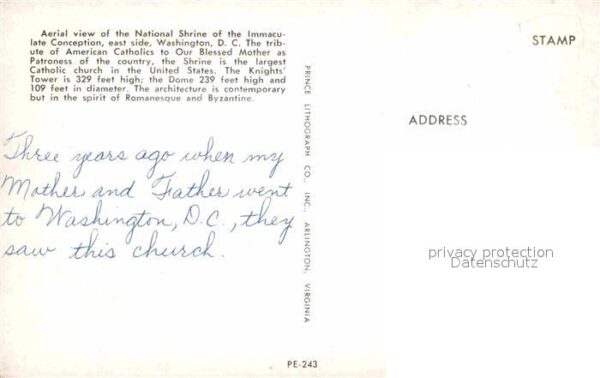 Aerial view of the National Shrine of the Immacu-
late Conception, east side, Washington, D. C. The trib-
ute of American Catholics to Our Blessed Mother as
Patroness of the country, the Shrine is the largest
Catholic church in the United States. The Knights'
Tower is 329 feet high; the Dome 239 feet high and
109 feet in diameter. The architecture is contemporary
but in the spirit of Romanesque and Byzantine.
Three years ago when my
Mother and Father went
to Washington, D.C., they
saw this church.
PRINCE LITHOGRAPH CO., INC., ARLINGTON, VIRGINIA
STAMP
ADDRESS
privacy protection
Datenschutz
PE-243